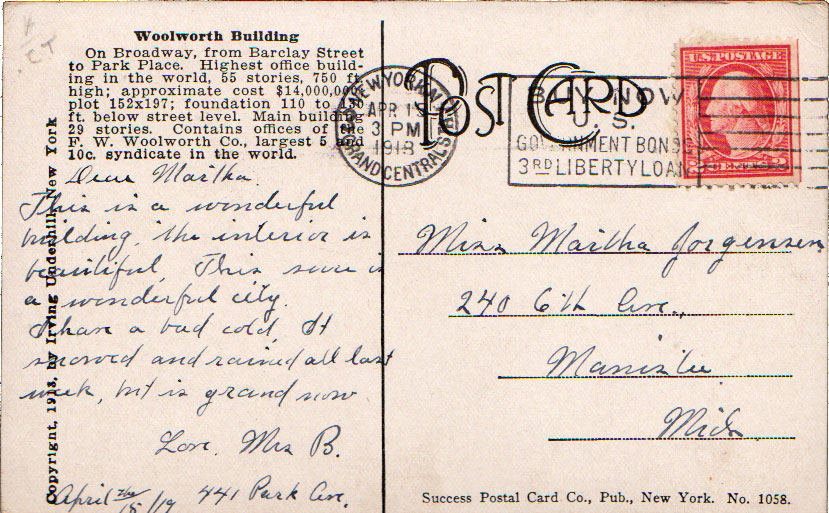 Woolworth Building
On Broadway, from Barclay Street
to Park Place. Highest office build-
ing in the world, 55 stories, 750 ft.
high; approximate cost $14,000,000;
plot 152x197; foundation 110 to 130
ft. below street level. Main building
29 stories. Contains offices of the
F. W. Woolworth Co., largest 5 and
10c. syndicate in the world.
Dear Martha.
This is a wonderful
building, the interior is
beautiful, This sure is
a wonderful city.
I have a bad cold. It
snowed and rained all last
week, but is grand now.
Love. Mrs B.
April the 441 Park Ave.
Copyright, 1913, by Irving Underhill, New York
POST CARD
NEW YORK, N.Y.
APR 1
3 PM
GRAND CENTRAL STA.
BUY NOW
U. S.
GOVERNMENT BONDS
3RD LIBERTY LOAN
U.S. POSTAGE
2 CENTS 2
Miss Martha Jorgensen
240 6th Ave.,
Manistee
Mich.
Success Postal Card Co., Pub., New York. No. 1058.